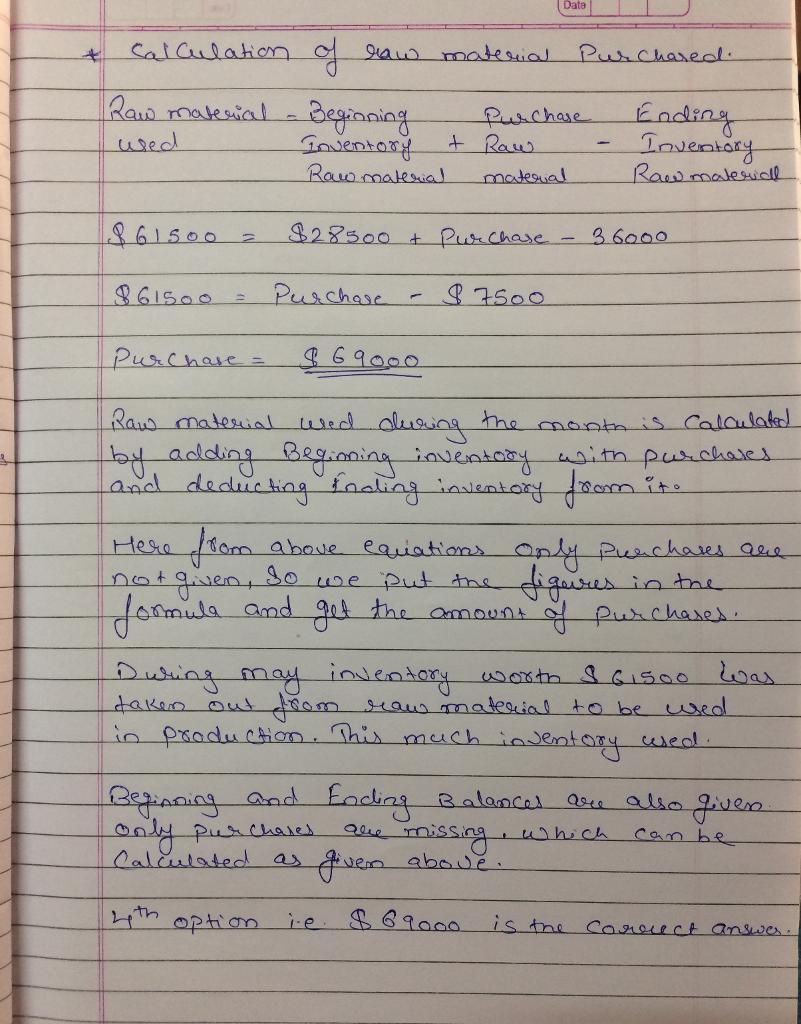 Date
* Calculation of raw material Purchased.
Raw material = Beginning Purchase Ending
used Inventory + Raw - Inventory
Raw material material Raw material
$61500 = $28500 + Purchase - 36000
$61500 = Purchase - $7500
Purchase = $69000
Raw material used during the month is Calculated
by adding Beginning inventory with purchases
and deducting Ending inventory from it.
Here from above equations only Purchases are
not given, So we put the figures in the
formula and get the amount of purchases.
During may inventory worth $61500 was
taken out from raw material to be used
in production. This much inventory used.
Beginning and Ending Balances are also given
only purchases are missing, which can be
Calculated as given above.
4th option i.e. $69000 is the correct answer.